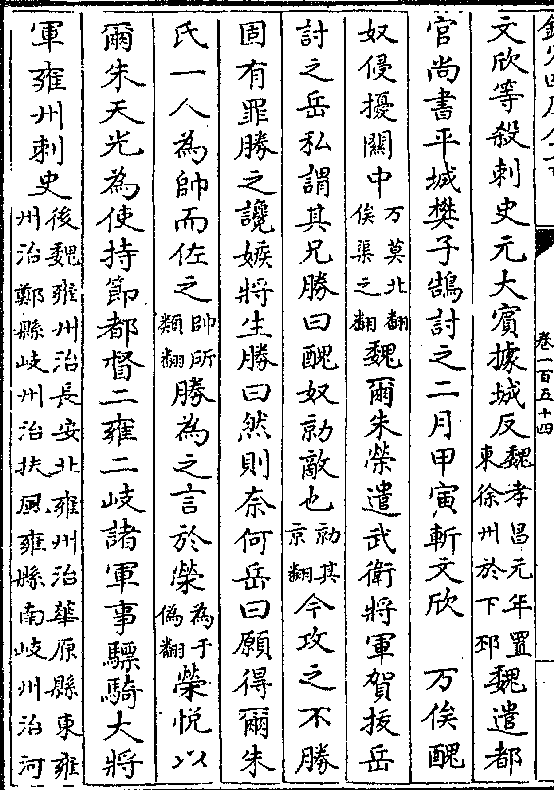 卷一百五十四
文欣等殺刺史元大賔據城反魏孝昌元年置東徐州於下邳魏遣都
官尚書平城樊子鵠討之二月甲寅斬文欣　万俟醜
奴侵擾關中万莫北翻俟渠之翻魏爾朱榮遣武衛將軍賀拔岳
討之岳私謂其兄勝曰醜奴勍敵也勍其京翻今攻之不勝
固有罪勝之讒嫉將生勝曰然則奈何岳曰願得爾朱
氏一人為帥而佐之帥所類翻勝為之言於榮為于偽翻榮悅以
爾朱天光為使持節都督二雍二岐諸軍事驃騎大將
軍雍州刺史後魏雍州治長安北雍州治華原縣東雍州治鄭縣岐州治扶風雍縣南岐州治河